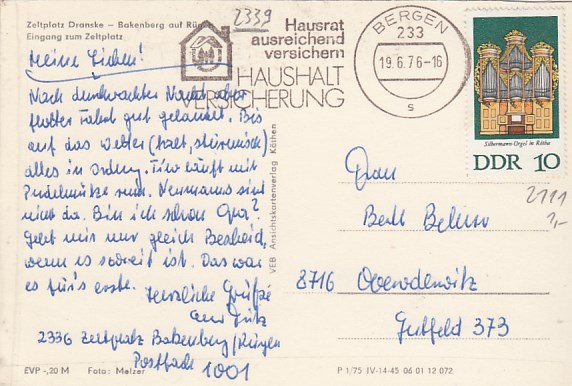 Zeltplatz Dranske – Bakenberg auf Rügen
Eingang zum Zeltplatz
2339
Hausrat
ausreichend
versichern
HAUSHALT
VERSICHERUNG
BERGEN
233
19.6.76-16
s
Silbermann-Orgel in Rötha
DDR 10
Meine Lieben!
Nach durchwachter Nacht aber
flotter Fahrt gut gelandet. Bis
auf das Wetter (kalt, stürmisch)
alles in Ordng. Tino läuft mit
Pudelmütze rum. Neumanns sind
nicht da. Bin ich schon Opa?
Gebt mir nur gleich Bescheid,
wenn es soweit ist. Das war
es für's erste. Herzliche Grüße
2336 Zeltplatz Bakenberg/Rügen
Postfach 1001
VEB Ansichtskartenverlag Köthen
Frau
8716 Oberoderwitz
373
2111
EVP -,20 M Foto: Melzer
P 1/75 IV-14-45 06 01 12 072